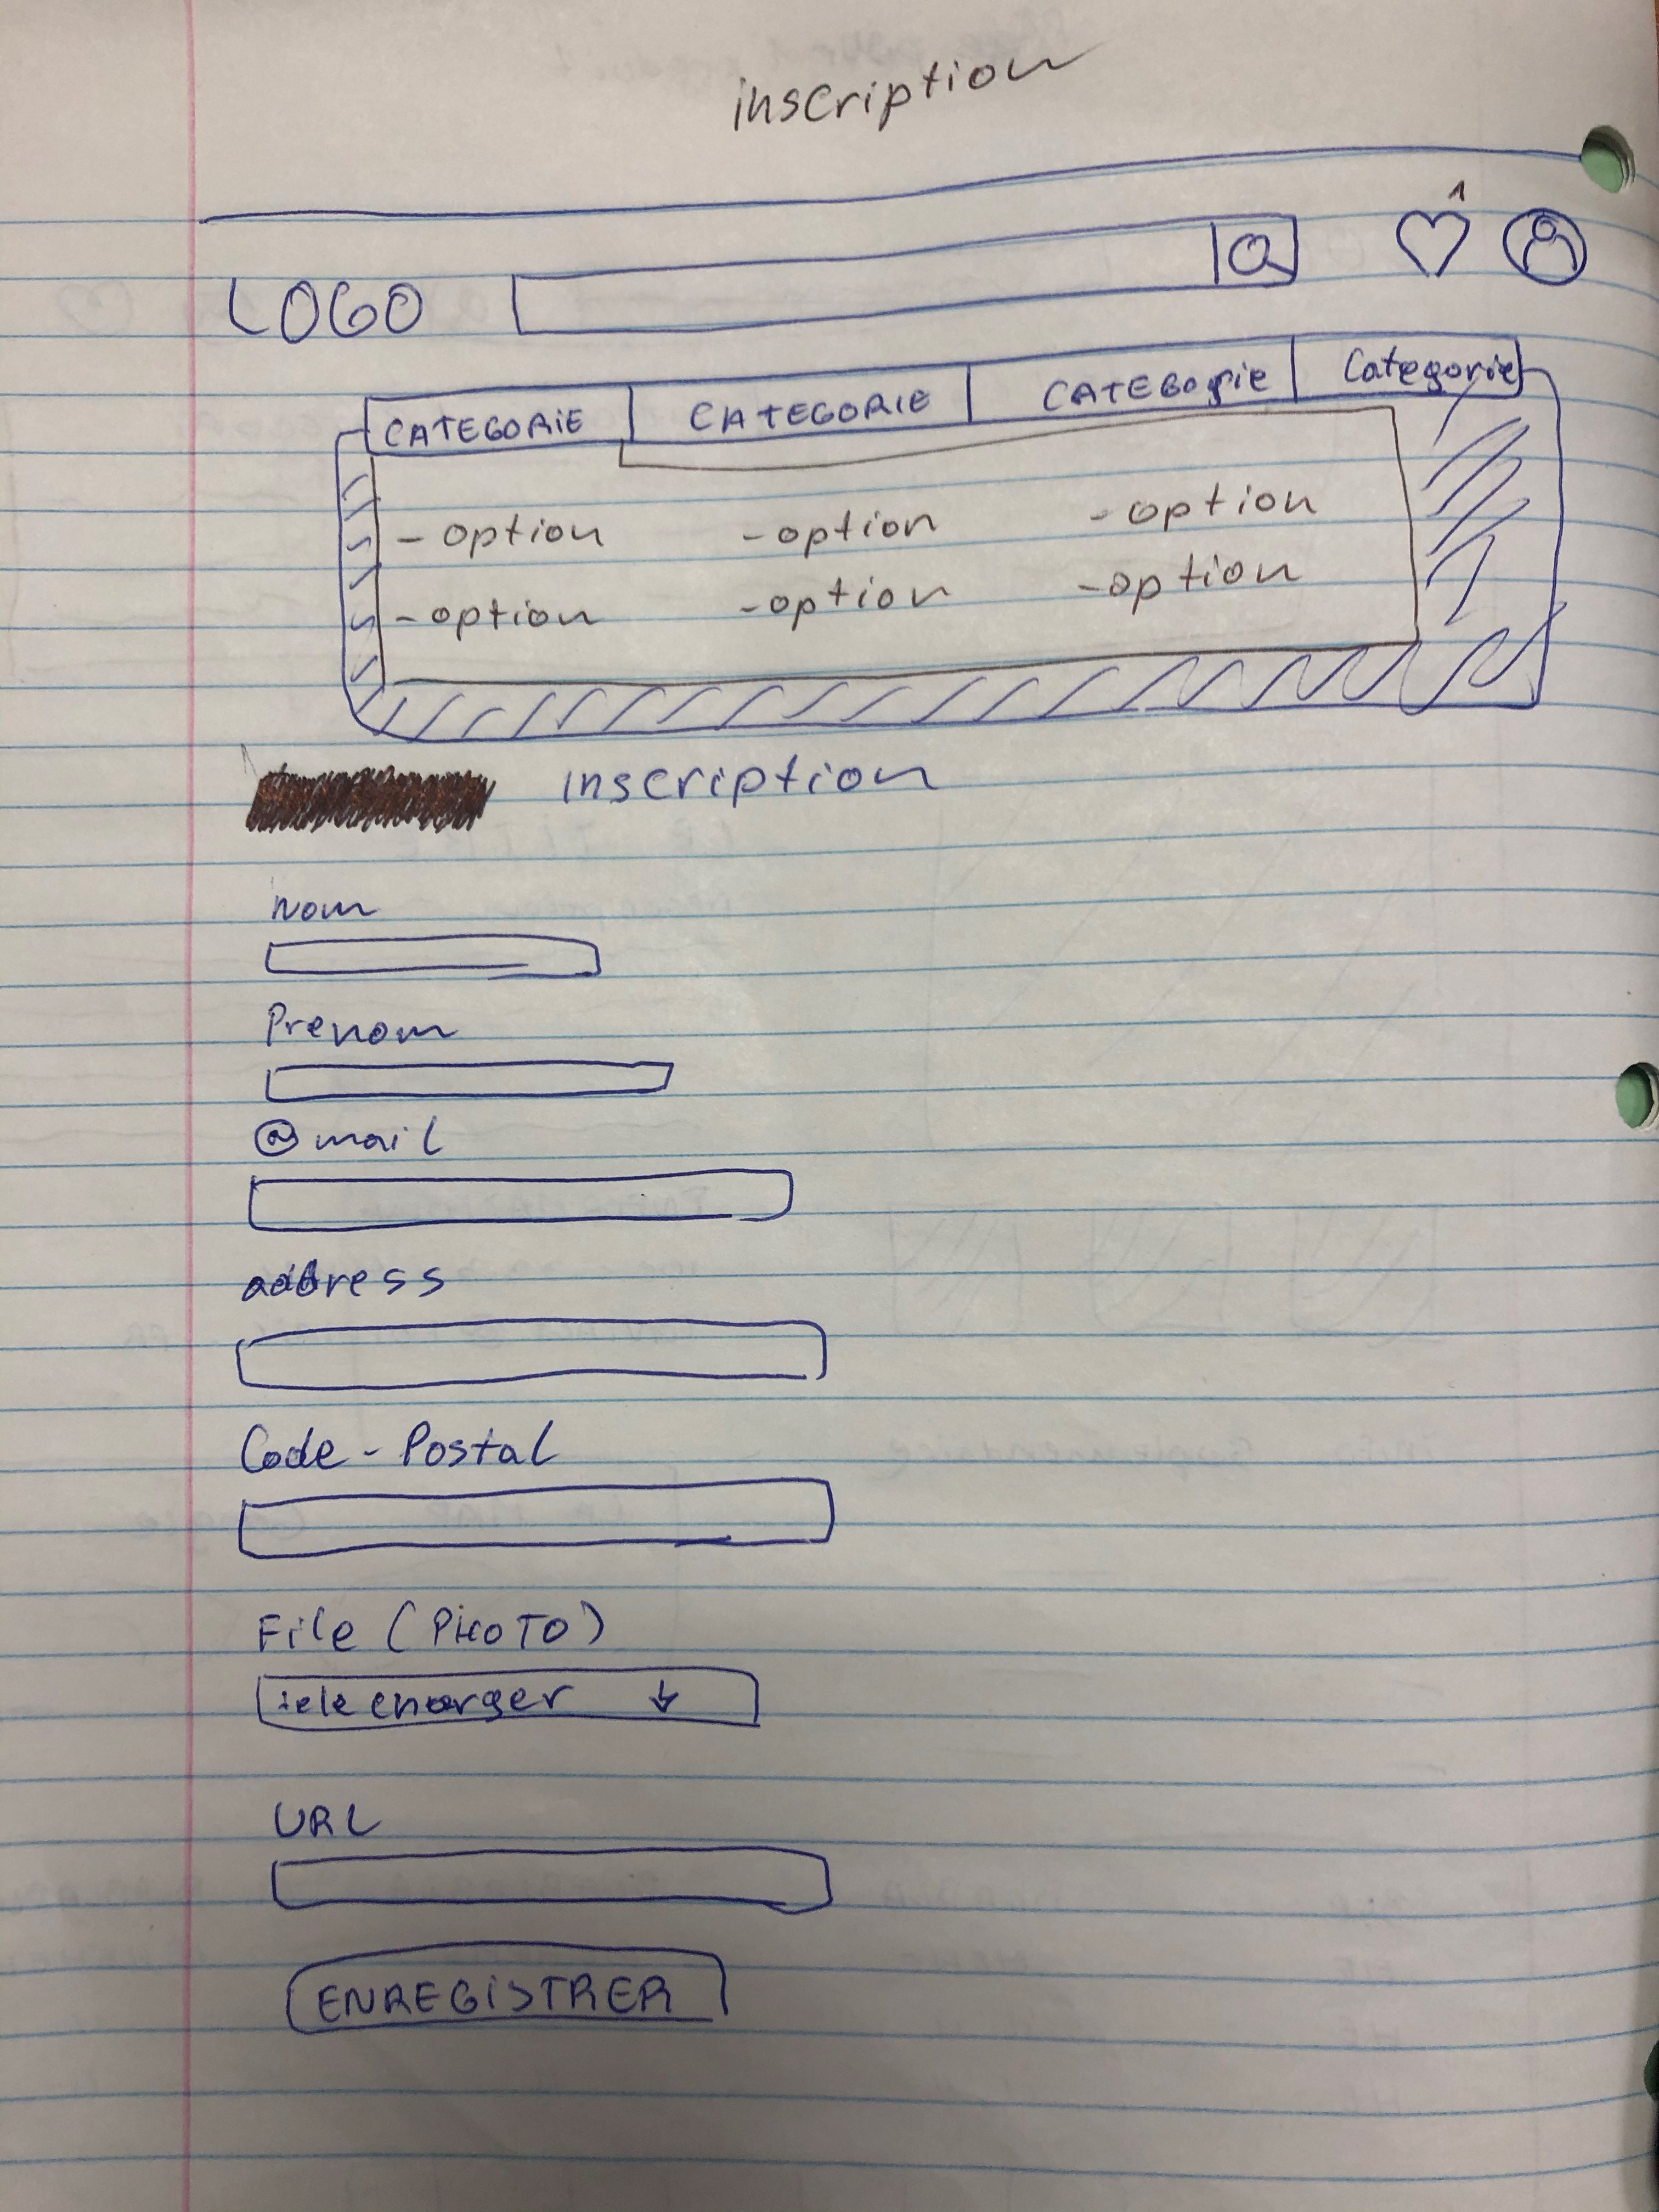 inscription
1
LOGO
CATEGORIE CATEGORIE CATEGorie Categorie
- option - option - option
- option - option - option
inscription
Nom
Prenom
@mail
address
Code - Postal
File (PHOTO)
telecharger ↓
URL
ENREGISTRER